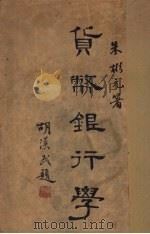 朱彬元著
貨幣銀行學
胡漢民題
www.mtoou.info